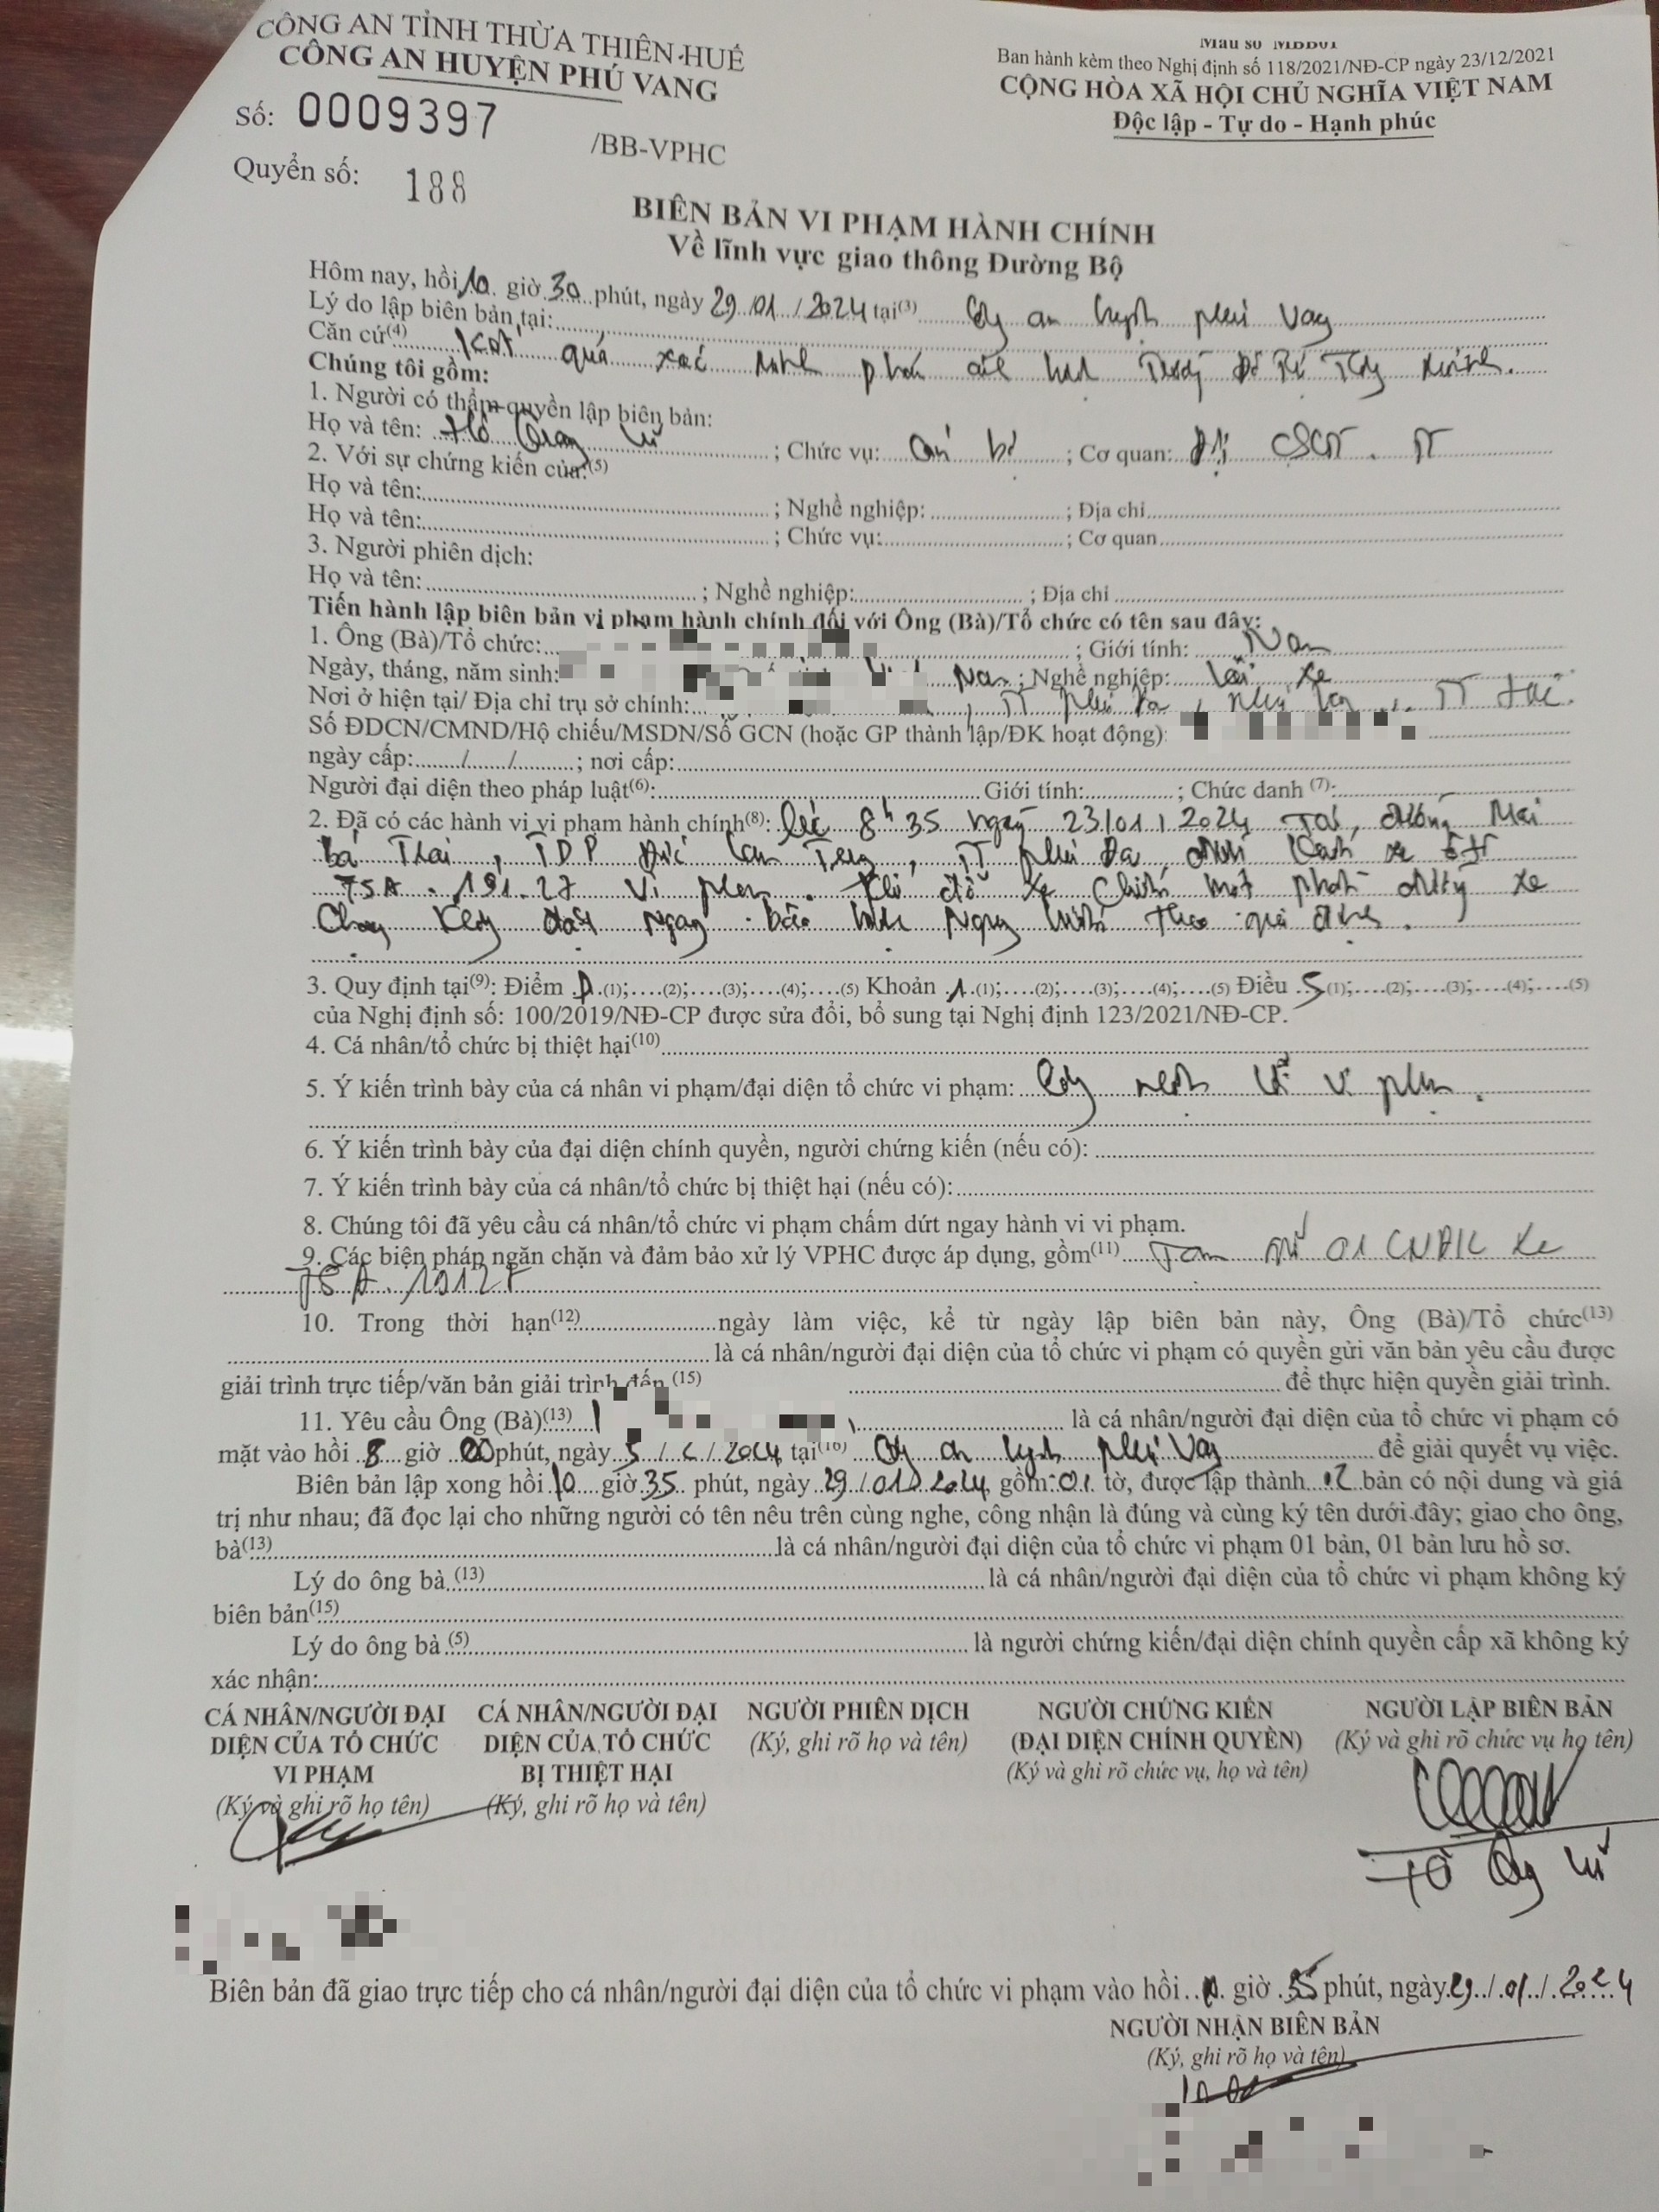 CÔNG AN TỈNH THỪA THIÊN-HUẾ
CÔNG AN HUYỆN PHÚ VANG
Mẫu số MBB01
Ban hành kèm theo Nghị định số 118/2021/NĐ-CP ngày 23/12/2021
CỘNG HÒA XÃ HỘI CHỦ NGHĨA VIỆT NAM
Độc lập - Tự do - Hạnh phúc
Số: 0009397 /BB-VPHC
Quyển số: 188
BIÊN BẢN VI PHẠM HÀNH CHÍNH
Về lĩnh vực giao thông Đường Bộ
Hôm nay, hồi 10 giờ 30 phút, ngày 29/01/2024 tại(3) Công an huyện Phú Vang
Lý do lập biên bản tại:
Căn cứ(4) Kết quả xác minh
Chúng tôi gồm:
1. Người có thẩm quyền lập biên bản:
Họ và tên: ; Chức vụ: Cán bộ ; Cơ quan: Đội CSGT. TT
2. Với sự chứng kiến của:(5)
Họ và tên: ; Nghề nghiệp: ; Địa chỉ
Họ và tên: ; Chức vụ: ; Cơ quan
3. Người phiên dịch:
Họ và tên: ; Nghề nghiệp: ; Địa chỉ
Tiến hành lập biên bản vi phạm hành chính đối với Ông (Bà)/Tổ chức có tên sau đây:
1. Ông (Bà)/Tổ chức: ; Giới tính: Nam
Ngày, tháng, năm sinh: Nam ; Nghề nghiệp: Lái xe
Nơi ở hiện tại/ Địa chỉ trụ sở chính: , TT Phú Đa, Phú Vang, TT Huế.
Số ĐDCN/CMND/Hộ chiếu/MSDN/Số GCN (hoặc GP thành lập/ĐK hoạt động):
ngày cấp: / / ; nơi cấp:
Người đại diện theo pháp luật(6): Giới tính: ; Chức danh (7):
2. Đã có các hành vi vi phạm hành chính(8): lúc 8h35 ngày 23/01/2024 Tại, đường Mai
Bá , TDP Đức Lam Trung, TT Phú Đa, xe ôtô
75A-191.27 vi phạm. Khi đỗ xe chiếm một phần đường xe
chạy không đặt ngay báo hiệu nguy hiểm theo quy định.
3. Quy định tại(9): Điểm (1);....(2);....(3);....(4);....(5) Khoản 1(1);....(2);....(3);....(4);....(5) Điều 5(1);....(2);....(3);....(4);....(5)
của Nghị định số: 100/2019/NĐ-CP được sửa đổi, bổ sung tại Nghị định 123/2021/NĐ-CP.
4. Cá nhân/tổ chức bị thiệt hại(10)
5. Ý kiến trình bày của cá nhân vi phạm/đại diện tổ chức vi phạm: Công nhận lỗi vi phạm.
6. Ý kiến trình bày của đại diện chính quyền, người chứng kiến (nếu có):
7. Ý kiến trình bày của cá nhân/tổ chức bị thiệt hại (nếu có):
8. Chúng tôi đã yêu cầu cá nhân/tổ chức vi phạm chấm dứt ngay hành vi vi phạm.
9. Các biện pháp ngăn chặn và đảm bảo xử lý VPHC được áp dụng, gồm(11) Tạm giữ 01 CNĐK xe
75A.19127
10. Trong thời hạn(12) ngày làm việc, kể từ ngày lập biên bản này, Ông (Bà)/Tổ chức(13)
là cá nhân/người đại diện của tổ chức vi phạm có quyền gửi văn bản yêu cầu được
giải trình trực tiếp/văn bản giải trình đến (15) để thực hiện quyền giải trình.
11. Yêu cầu Ông (Bà)(13) là cá nhân/người đại diện của tổ chức vi phạm có
mặt vào hồi 8 giờ 00 phút, ngày 5/2/2024 tại(16) Công an huyện Phú Vang để giải quyết vụ việc.
Biên bản lập xong hồi 10 giờ 35 phút, ngày 29/01/2024, gồm: 01 tờ, được lập thành 02 bản có nội dung và giá
trị như nhau; đã đọc lại cho những người có tên nêu trên cùng nghe, công nhận là đúng và cùng ký tên dưới đây; giao cho ông,
bà(13) là cá nhân/người đại diện của tổ chức vi phạm 01 bản, 01 bản lưu hồ sơ.
Lý do ông bà (13) là cá nhân/người đại diện của tổ chức vi phạm không ký
biên bản(15)
Lý do ông bà (5) là người chứng kiến/đại diện chính quyền cấp xã không ký
xác nhận:
CÁ NHÂN/NGƯỜI ĐẠI
DIỆN CỦA TỔ CHỨC
VI PHẠM
(Ký và ghi rõ họ tên)
CÁ NHÂN/NGƯỜI ĐẠI
DIỆN CỦA TỔ CHỨC
BỊ THIỆT HẠI
(Ký, ghi rõ họ và tên)
NGƯỜI PHIÊN DỊCH
(Ký, ghi rõ họ và tên)
NGƯỜI CHỨNG KIẾN
(ĐẠI DIỆN CHÍNH QUYỀN)
(Ký và ghi rõ chức vụ, họ và tên)
NGƯỜI LẬP BIÊN BẢN
(Ký và ghi rõ chức vụ họ tên)
Biên bản đã giao trực tiếp cho cá nhân/người đại diện của tổ chức vi phạm vào hồi giờ 35 phút, ngày 29/01/2024
NGƯỜI NHẬN BIÊN BẢN
(Ký, ghi rõ họ và tên)